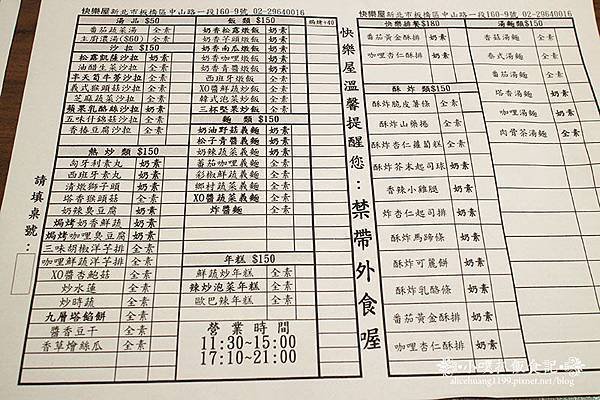 快樂屋新北市板橋區中山路一段160-9號 02-29640016
湯品 $50
番茄蔬菜湯 全素
主廚濃湯($60) 全素
沙拉 $150
松露凱薩沙拉 奶素
油醋生菜沙拉 全素
義式猴頭菇沙拉 全素
芝麻蔬菜沙拉 全素
蘋果乳酪絲沙拉 奶素
五味什錦菇沙拉 全素
香椿豆腐沙拉 全素
熱炒類 $150
匈牙利素丸 奶素
西班牙素丸 全素
清燉獅子頭 奶素
塔香猴頭菇 全素
奶辣臭豆腐 奶素
焗烤奶香鮮蔬 奶素
焗烤咖哩臭豆腐 奶素
三味胡椒洋芋排 全素
咖哩鮮蔬洋芋排 奶素
XO醬杏鮑菇 全素
炒水蓮 全素
炒時蔬 全素
九層塔餡餅 全素
醬香豆干 全素
香草燴絲瓜 全素
飯類 $150 焗烤+40
奶香松露燉飯 奶素
奶香芋頭燉飯 奶素
奶香南瓜燉飯 奶素
奶香青醬燉飯 奶素
西班牙燉飯 全素
XO醬鮮蔬炒飯 全素
韓式泡菜炒飯 全素
三杯堅果炒飯 全素
麵類 $150
奶油野菇義麵 奶素
松子青醬義麵 奶素
奶辣蔬菜義麵 奶素
蕃茄咖哩義麵 全素
彩椒鮮蔬義麵 全素
鄉村蔬菜義麵 全素
XO醬蔬菜義麵 全素
炸醬麵 全素
年糕 $150
鮮蔬炒年糕 全素
辣炒泡菜年糕 全素
歐巴辣年糕 全素
營業時間
11:30~15:00
17:10~21:00
請填桌號:
快樂屋溫馨提醒您:禁帶外食喔
快樂屋新北市板橋區中山路一段160-9號 02-29640016
快樂排餐$180
番茄黃金酥排 奶素
咖哩杏仁酥排 奶素
酥炸類$150
酥炸脆皮薯條 全素
酥炸山藥捲 全素
酥炸杏仁蘿蔔糕 全素
酥炸芥末起司球 奶素
香辣小雞腿 奶素
炸杏仁起司排 奶素
酥炸馬蹄條 奶素
酥炸可麗餅 奶素
酥炸乳酪條 奶素
番茄黃金酥排 奶素
咖哩杏仁酥排 奶素
湯麵類$150
泰式湯麵 全素
番茄湯麵 全素
塔香湯麵 奶素
咖哩湯麵 奶素
肉骨茶湯麵 全素
alicehuang1199.pixnet.net/blog